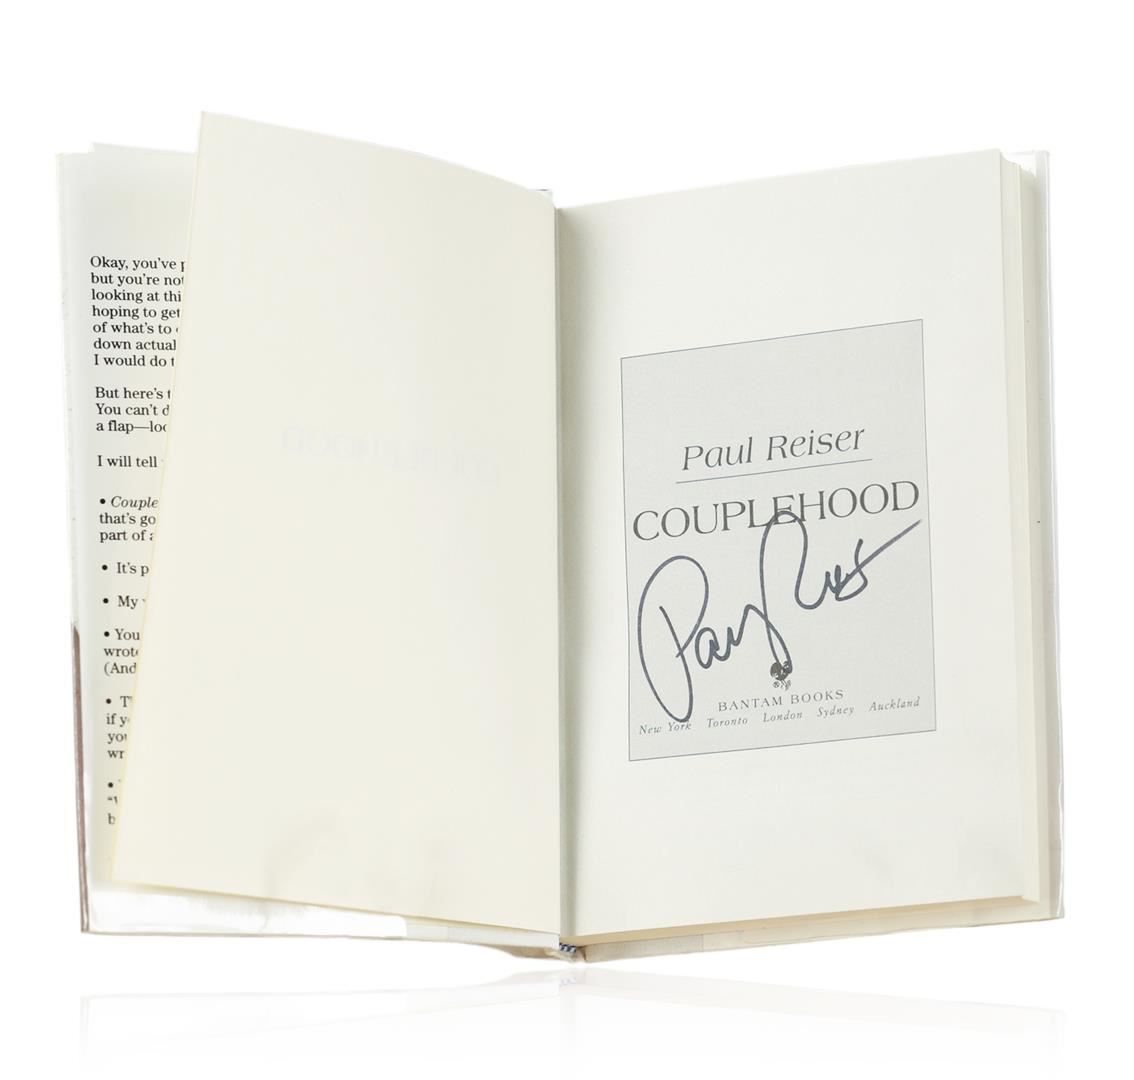 Okay, you've
but you're not
looking at
hoping to get
of what's to
down
I would do
But here's
You can't
a flap—
I will tell
•
that's
part of
• It's
• My
• You
wrote
(And
•
if
wr
•
Paul Reiser
COUPLEHOOD
Paul Reiser
BANTAM BOOKS
New York Toronto London Sydney Auckland